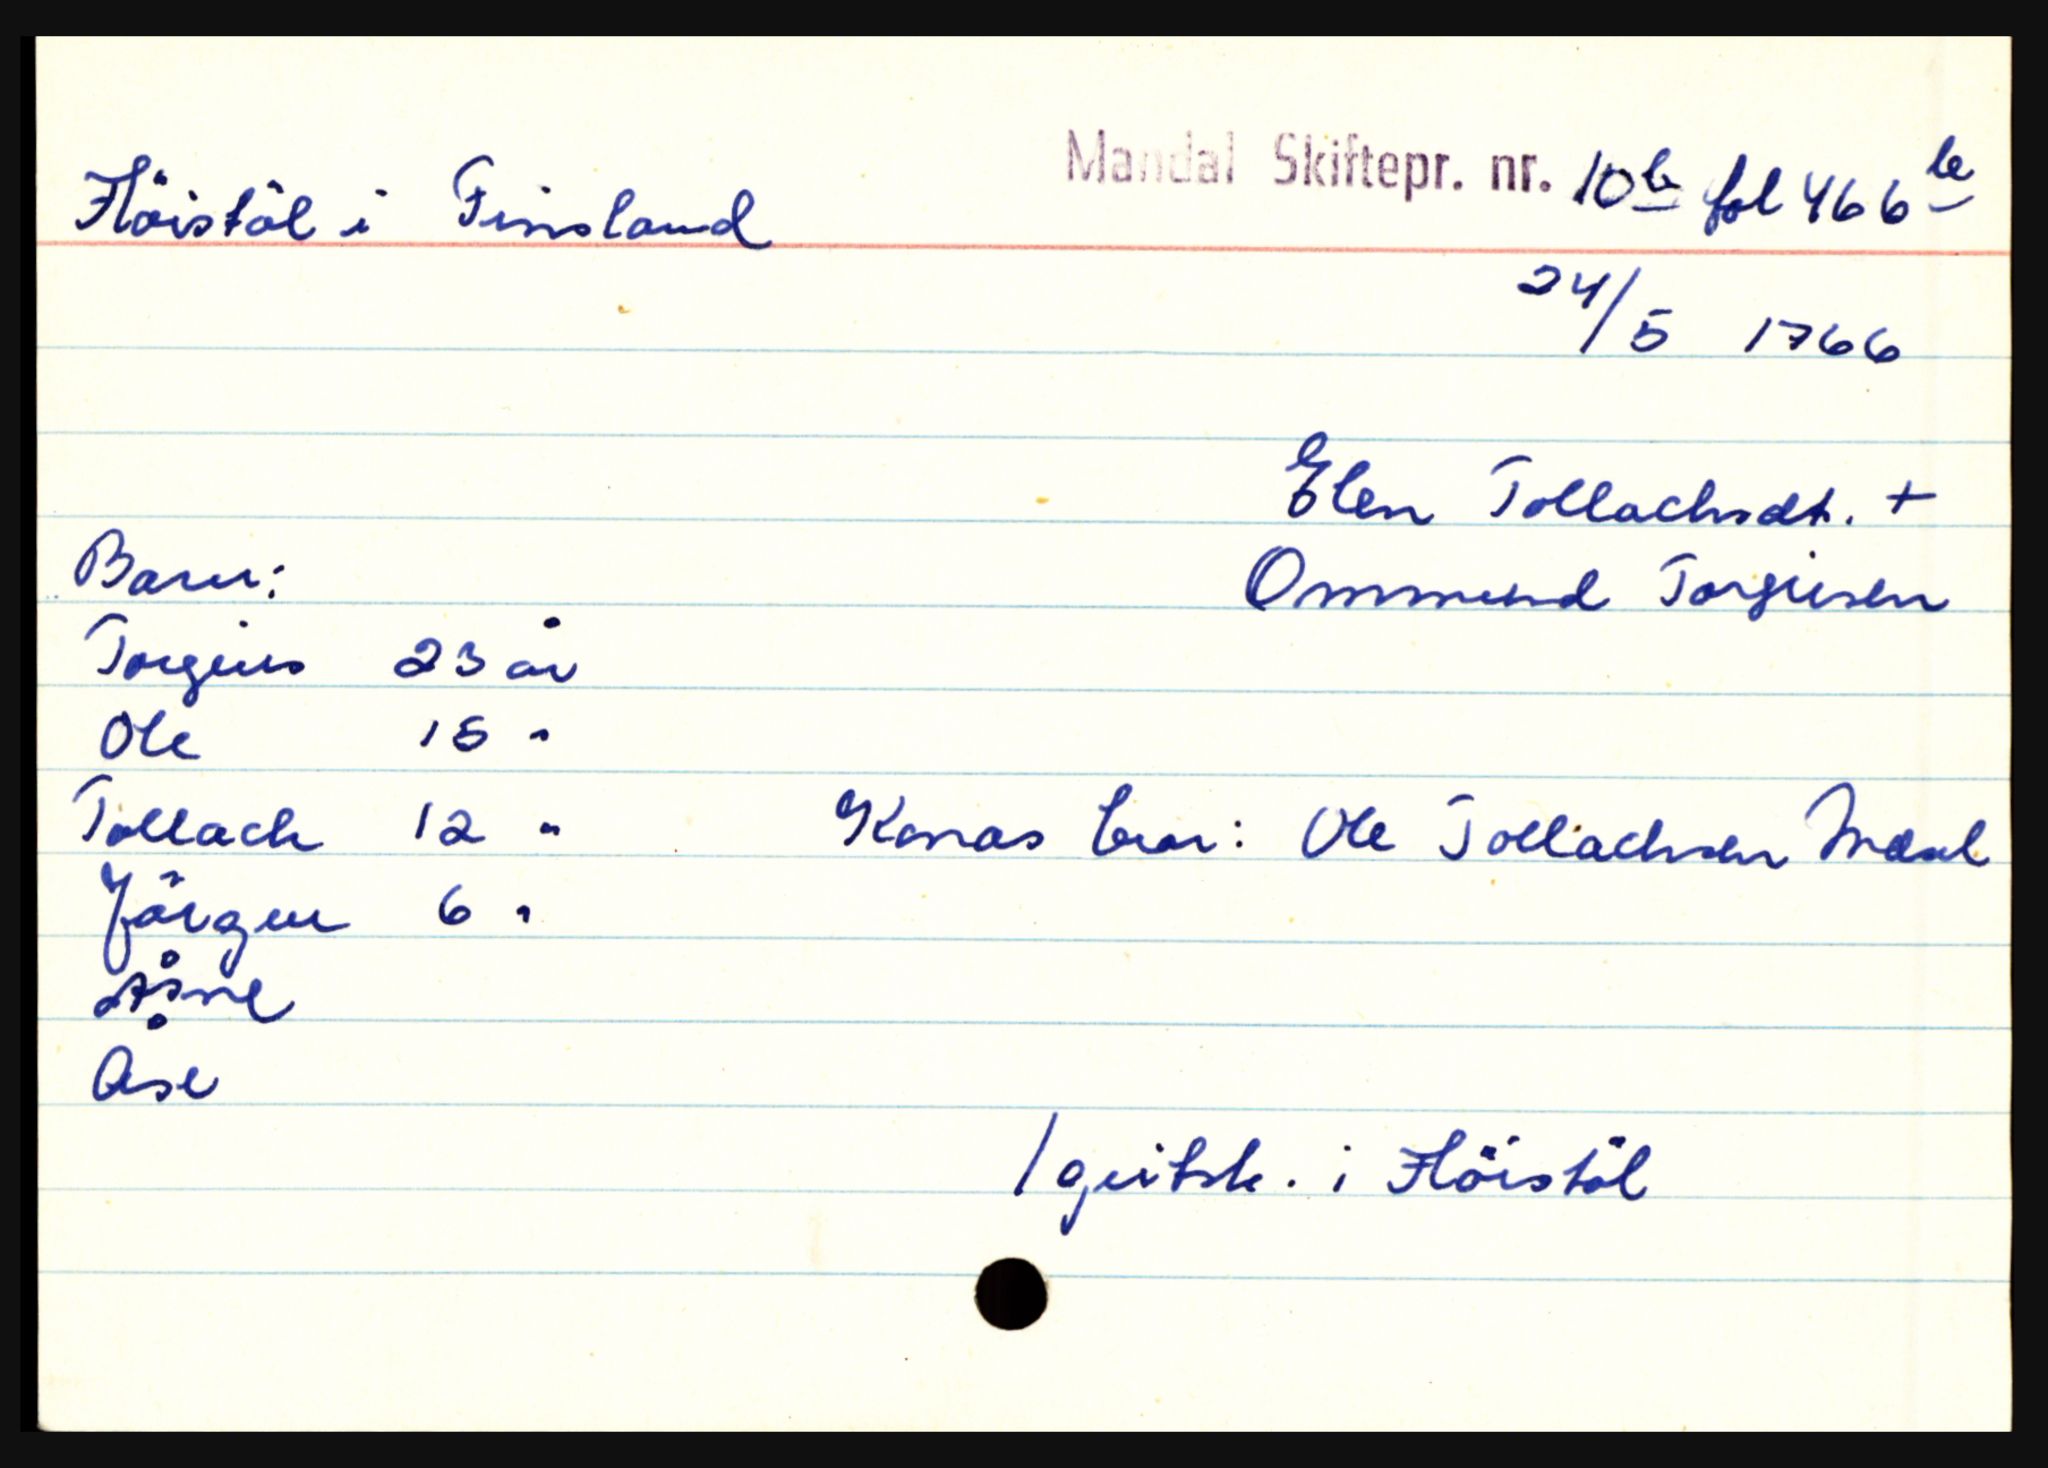 Mandal Skiftepr. nr. 10b fol 466b
Flöistöl i Finsland
24/5 1766
Elen Tollachsdt. +
Barn:
Ommund Torgiusen
Torgius 23 år
Ole 15 "
Tollach 12 " Konas bror: Ole Tollachsen
Jörgen 6 "
Åsne
Åse
/ i Flöistöl